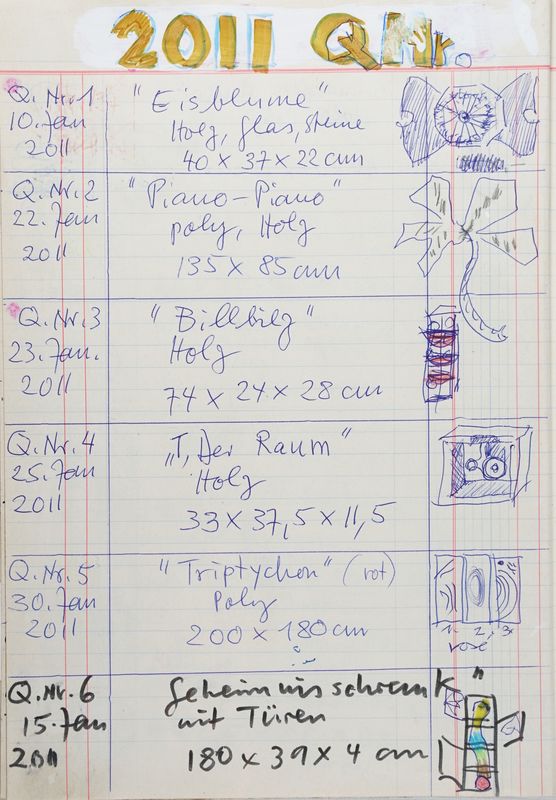 2011 QNr.
Q. Nr. 1 "Eisblume"
10. Jan Holz, glas, steine
2011 40 x 37 x 22 cm
Q. Nr. 2 "Piano-Piano"
22. Jan poly, Holz
2011 135 x 85 cm
Q. Nr. 3
23. Jan. Holz
2011 74 x 24 x 28 cm
Q. Nr. 4 „T, Der Raum"
25. Jan Holz
2011 33 x 37,5 x 11,5
Q. Nr. 5 "Triptychon" (rot)
30. Jan Poly
2011 200 x 180 cm
1. 2. 3.
Q. Nr. 6 Geheimnisschrank"
15. Jan mit Türen
2011 180 x 39 x 4 cm